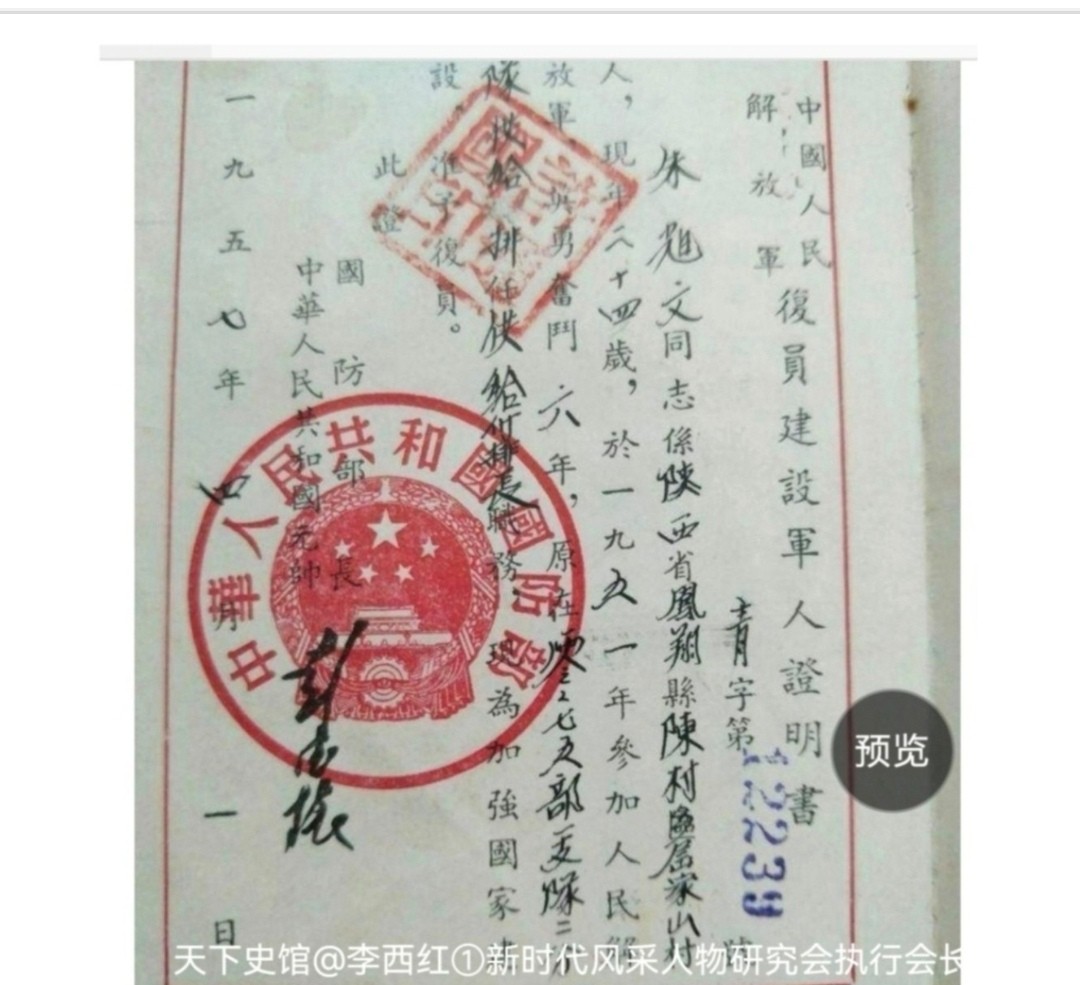 中國人民
解放軍
復員建設軍人證明書
青字第12239號
朱旭文同志係陝西省鳳翔縣陳村區屈家山村
人,現年二十四歲,於一九五一年參加人民解
放軍,英勇奮鬥六年,原在 二二七五部支隊二
隊供給 排任供給付排長職務,現為加強國家建
設,准予復員。
此證
國防部長
中華人民共和國元帥
彭德懷
一九五七年四月一日
中華人民共和國國防部
预览
天下史馆@李西红①新时代风采人物研究会执行会长